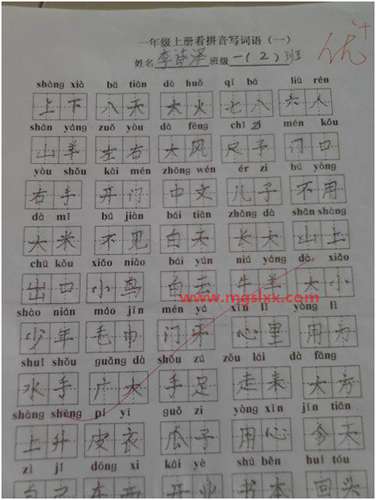 一年级上册看拼音写词语（一）
姓名 班级 一（2）班 优+
shàng xià bā tiān dà huǒ qī bā liù rén
上下 八天 大火 七八 六人
shān yáng zuǒ yòu dà fēng chǐ zi mén kǒu
山羊 左右 大风 尺子 门口
yòu shǒu kāi mén zhōng wén ér zi bú yòng
右手 开门 中文 儿子 不用
dà mǐ bú jiàn bái tiān zhǎng dà shān shàng
大米 不见 白天 长大 山上
chū kǒu xiǎo niǎo bái yún niú yáng dà xiǎo
出口 小鸟 白云 牛羊 大小
www.mgslxx.com
shào nián máo jīn mén yá xīn lǐ yòng lì
少年 毛巾 门牙 心里 用力
shuǐ shǒu guǎng dà shǒu zú zǒu lái dà fāng
水手 广大 手足 走来 大方
shàng shēng pí yī guā zi yòng xīn jīn tiān
上升 皮衣 瓜子 用心 今天
zì jǐ dōng xi kāi yè shū běn huí tóu
自己 东西 开业 书本 回头